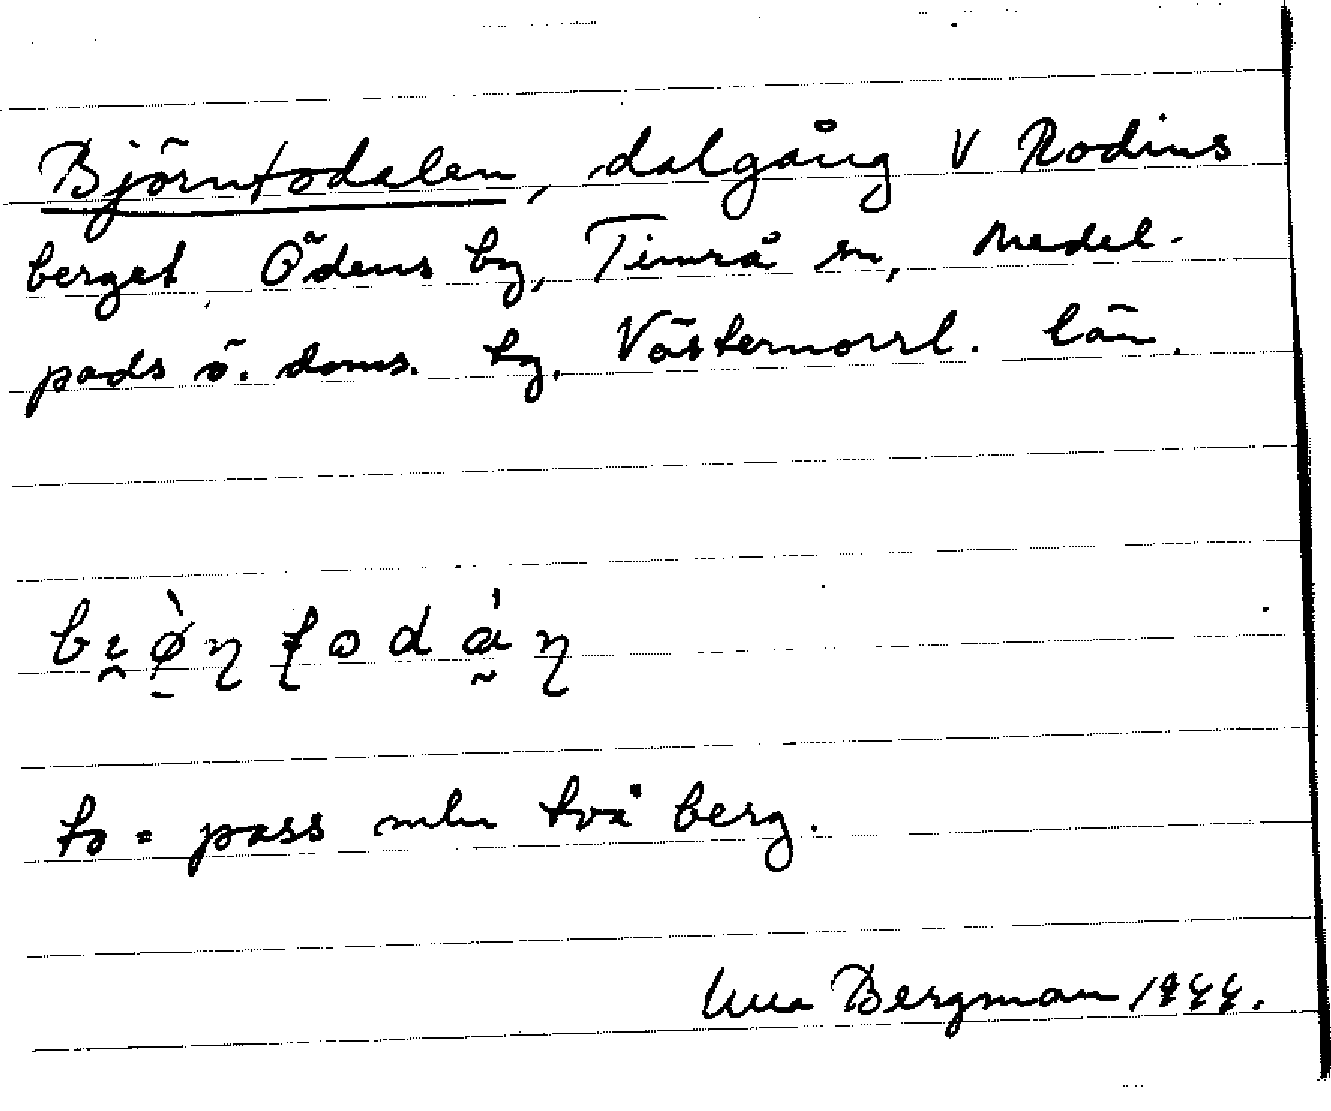 Björntodalen, dalgång V Rodins
berget, Ödens by, Timrå sn, Medel-
pads ö. doms. tg. Västernorrl. län.
to = pass mln två berg.
Bergman 1944.